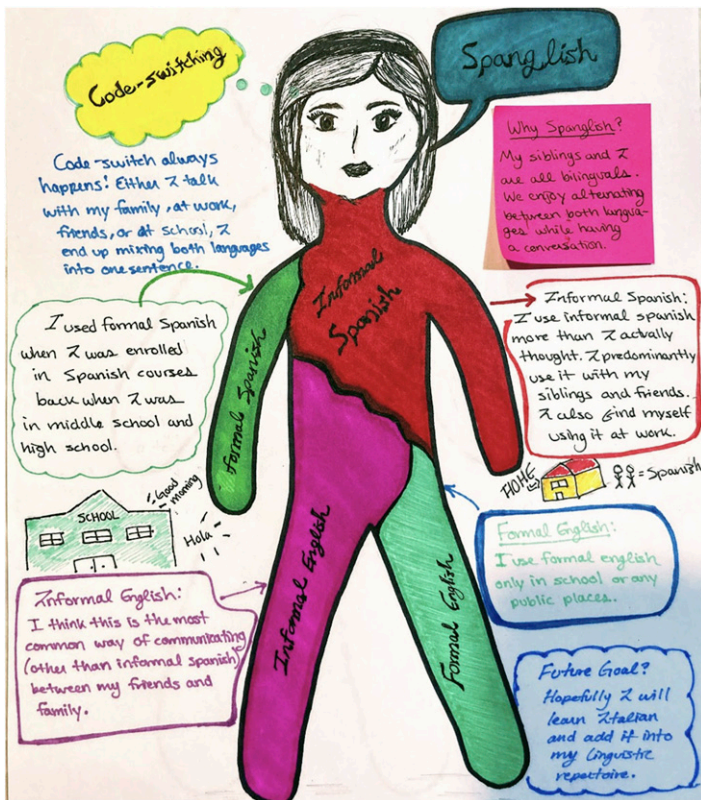 Code-switching
Spanglish
Code-switch always
happens! Either I talk
with my family, at work,
friends, or at school, I
end up mixing both languages
into one sentence.
Why Spanglish?
My siblings and I
are all bilinguals.
We enjoy alternating
between both langua-
ges while having
a conversation.
I used formal Spanish
when I was enrolled
in Spanish courses
back when I was
in middle school and
high school.
Formal Spanish
Informal
Spanish
Informal Spanish:
I use informal spanish
more than I actually
thought. I predominantly
use it with my
siblings and friends.
I also find myself
using it at work.
SCHOOL
Good
morning
Hola
HOME
= Spanish
Formal English:
I use formal english
only in school or any
public places.
Informal English:
I think this is the most
common way of communicating
(other than informal spanish)
between my friends and
family.
Informal English
Formal English
Future Goal?
Hopefully I will
learn Italian
and add it into
my linguistic
repertoire.